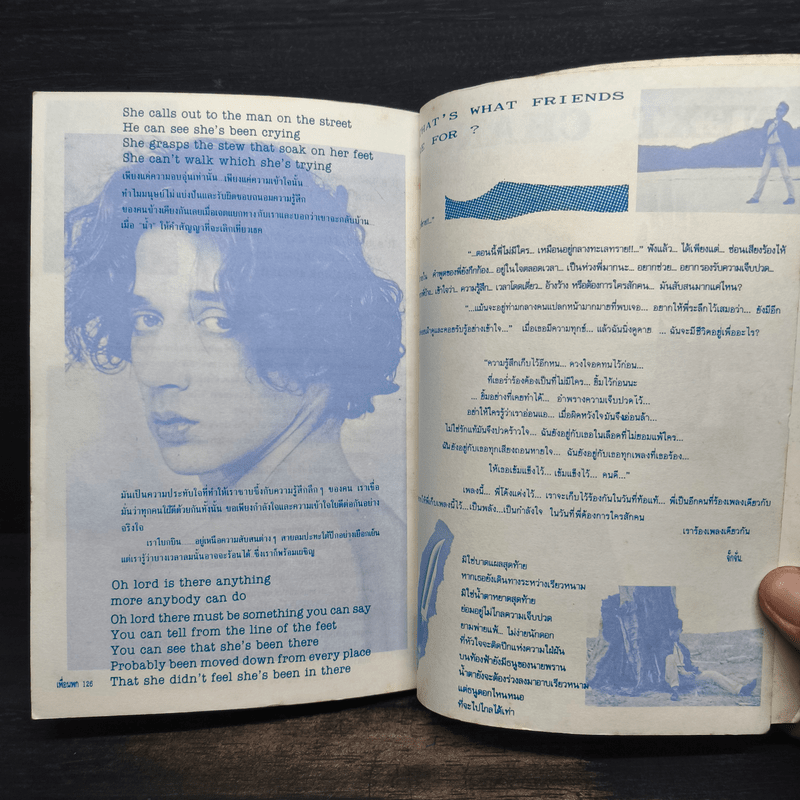 She calls out to the man on the street
He can see she's been crying
She grasps the stew that soak on her feet
She can't walk which she's trying
เพียงแค่ความอบอุ่นเท่านั้น เพียงแค่ความเข้าใจนั้น
ทำไมมนุษย์ไม่แบ่งปันและรับผิดชอบถนอมความรู้สึก
ของคนข้างเคียงกันเลยเมื่อเจตแยกทางกับเราและบอกว่าเขาจะกลับบ้าน
เมื่อ "น้ำ" ให้คำสัญญาที่จะเลิกเที่ยวเธค
มันเป็นความประทับใจที่ทำให้เราซาบซึ้งกับความรู้สึกลึก ๆ ของคน เราเชื่อ
มั่นว่าทุกคนไม้ดีด้วยกันทั้งนั้น ขอเพียงกำลังใจและความเข้าใจใยดีต่อกันอย่าง
จริงใจ
เราโบกบิน อยู่เหนือความสับสนต่าง ๆ สายลมปะทะใต้ปีกอย่างเยือกเย็น
แต่เรารู้ว่าบางเวลาลมนั้นอาจจะร้อนได้ ซึ่งเราก็พร้อมเผชิญ
Oh lord is there anything
more anybody can do
Oh lord there must be something you can say
You can tell from the line of the feet
You can see that she's been there
Probably been moved down from every place
That she didn't feel she's been in there
เพื่อนพก 126
HAT'S WHAT FRIENDS
FOR ?
"...ตอนนี้พี่ไม่มีใคร... เหมือนอยู่กลางทะเลทราย!!..." ฟังแล้ว... ได้เพียงแต่... ซ่อนเสียงร้องไห้
ใน คำพูดของพี่ยังกึกก้อง... อยู่ในใจตลอดเวลา... เป็นห่วงพี่มากนะ... อยากช่วย... อยากรองรับความเจ็บปวด...
เข้าใจว่า... ความรู้สึก... เวลาโดดเดี่ยว... อ้างว้าง หรือต้องการใครสักคน... มันสับสนมากแค่ไหน?
"...แม้นจะอยู่ท่ามกลางคนแปลกหน้ามากมายที่พบเจอ... อยากให้พี่ระลึกไว้เสมอว่า... ยังมีอีก
ดูและคอยรับรู้อย่างเข้าใจ..." เมื่อเธอมีความทุกข์... แล้วฉันนิ่งดูดาย ... ฉันจะมีชีวิตอยู่เพื่ออะไร?
"ความรู้สึกเก็บไว้อีกหน... ดวงใจอดทนไว้ก่อน...
ที่เธอร่ำร้องต้องเป็นที่ไม่มีใคร... ยิ้มไว้ก่อนนะ
... ยิ้มอย่างที่เคยทำได้... อำพรางความเจ็บปวดไว้...
อย่าให้ใครรู้ว่าเราอ่อนแอ... เมื่อผิดหวังใจมันจึงอ่อนล้า...
ไม่ใช่รักแท้มันจึงปวดร้าวใจ... ฉันยังอยู่กับเธอในเลือดที่ไม่ยอมแพ้ใคร...
ฉันยังอยู่กับเธอทุกเสียงถอนหายใจ... ฉันยังอยู่กับเธอทุกเพลงที่เธอร้อง...
ให้เธอเข้มแข็งไว้... เข้มแข็งไว้... คนดี..."
เพลงนี้... พี่โด่งแต่งไว้... เราจะเก็บไว้ร้องกันในวันที่ท้อแท้... พี่เป็นอีกคนที่ร้องเพลงเดียวกับ
ให้พี่เก็บเพลงนี้ไว้...เป็นพลัง...เป็นกำลังใจ ในวันที่พี่ต้องการใครสักคน
เราร้องเพลงเดียวกัน
จั๊กจั่น
มิใช่บาดแผลสุดท้าย
หากเธอยังเดินทางระหว่างเรียวหนาม
มิใช่น้ำตาหยาดสุดท้าย
ย่อมอยู่ไม่ไกลความเจ็บปวด
ยามพ่ายแพ้... ไม่ง่ายนักดอก
ที่หัวใจจะติดปีกแห่งความใฝ่ฝัน
บนท้องฟ้ายังมีธนูของนายพราน
น้ำตายังจะต้องร่วงลงมาอาบเรียวหนาม
แต่ธนูดอกไหนหนอ
ที่จะไปไกลได้เท่า